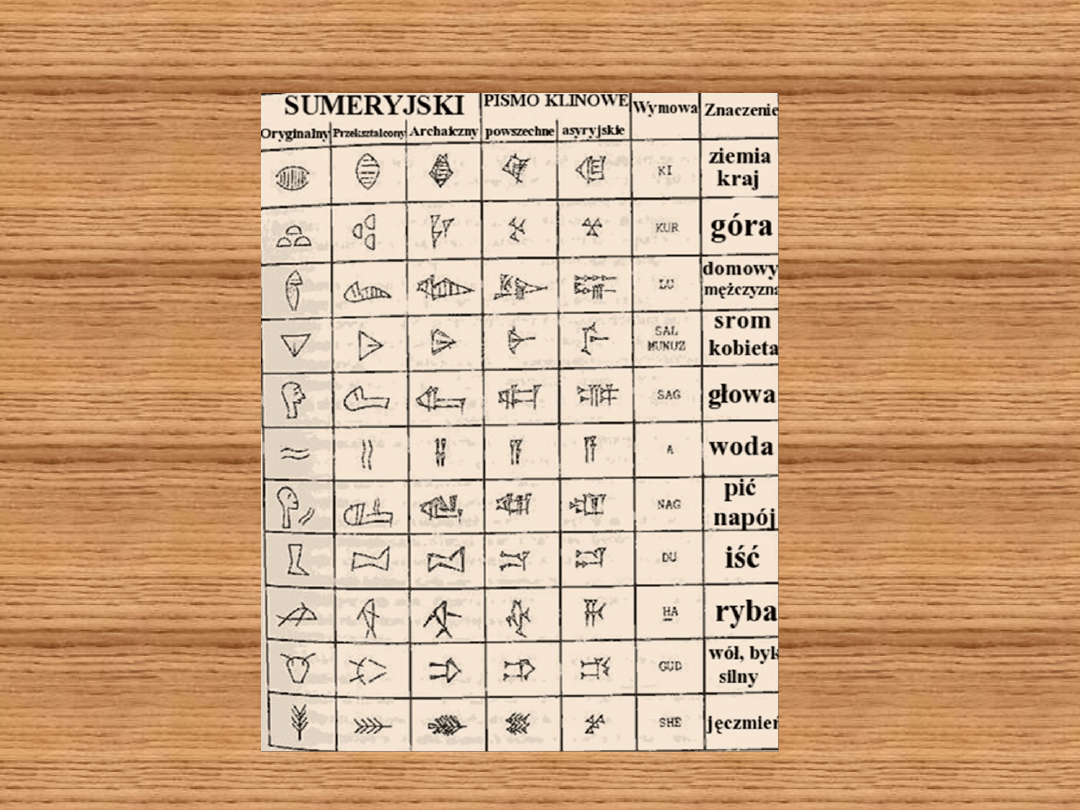 SUMERYJSKI PISMO KLINOWE Wymowa Znaczenie
Oryginalny Przekształcony Archaiczny powszechne asyryjskie
KI ziemia
kraj
KUR góra
LU domowy
mężczyzna
SAL srom
MUNUZ kobieta
SAG głowa
A woda
NAG pić
napój
DU iść
HA ryba
GUD wół, byk
silny
SHE jęczmień